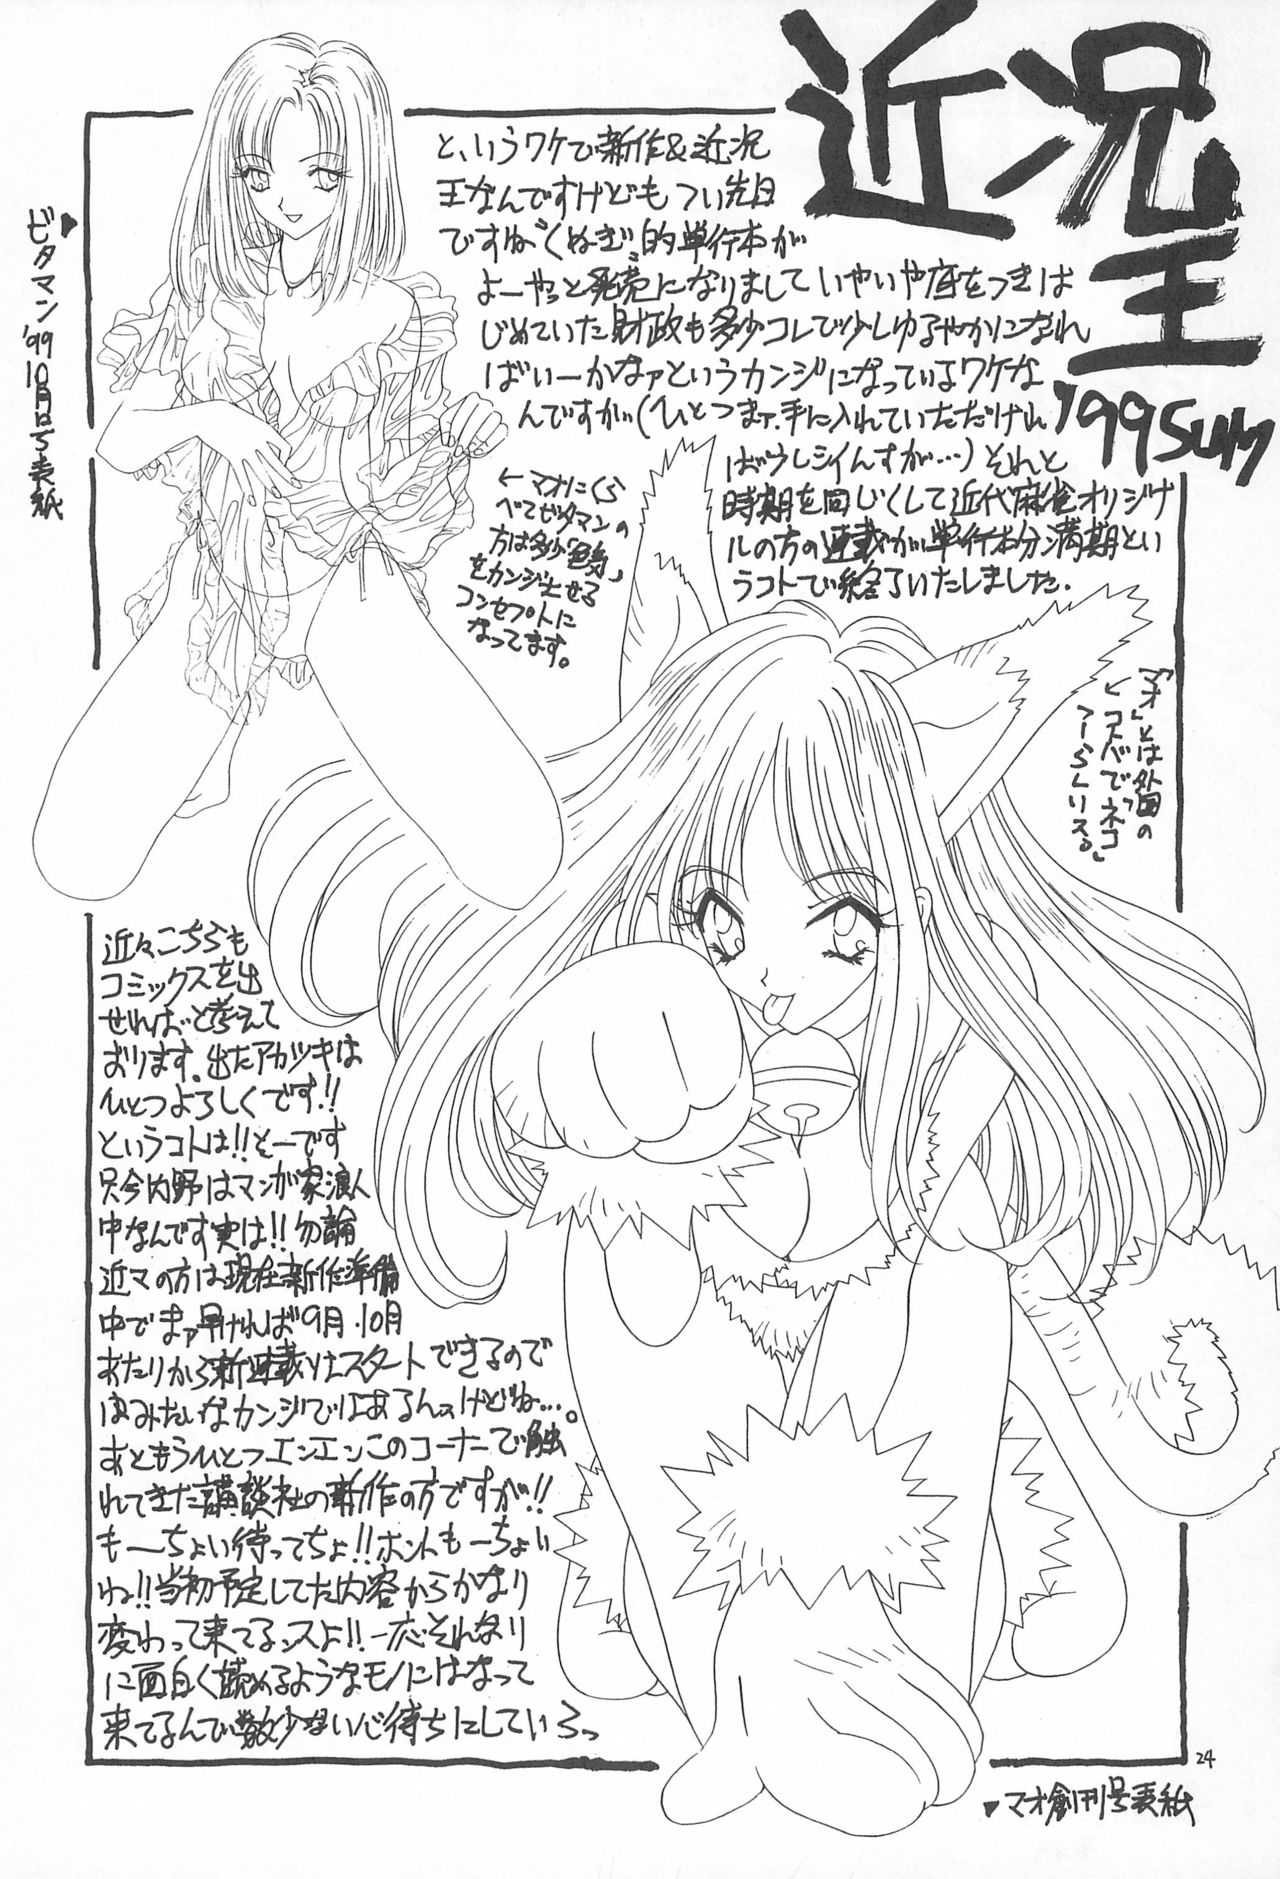 近況王
'99 SUM
と、いうワケで新作&近況
王なんですけどもつい先日
ですね“くぬぎ”的単行本が
よーやっと発売になりましていやいや底をつきは
じめていた財政も多少コレで少しゆるやかになれ
ばいーかなァというカンジになっているワケな
んですが(ひとつまァ手に入れていただけれ
ばウレシイんすが…)それと
時期を同じくして近代麻雀オリジナ
ルの方の連載が単行本分満期とい
うコトで終了いたしました.
ビタマン'99 10月号表紙
←マオにくら
べてビタマンの
方は多少「色気」
をカンジさせる
コンセプトに
なってます。
「マオ」とは外国の
コトバで「ネコ」
近々こちらも
コミックスを出
せればと考えて
おります.出たアカツキは
ひとつよろしくです!!
というコトは!!そーです
只今内野はマンガ家浪人
中なんです実は!!勿論
近マの方は現在新作準備
中でまァ早ければ9月.10月
あたりから新連載はスタートできるので
はみたいなカンジではあるんスけどね…。
あともうひとつエンエンこのコーナーで触
れてきた講談社の新作の方ですが!!
もーちょい待ってちょ!!ホントもーちょい
ね!!当初予定してた内容からかなり
変わって来てるンスよ!!一応それなり
に面白く読めるようなモノにはなって
来てるんで数少ない心待ちにしている
24
マオ創刊号表紙